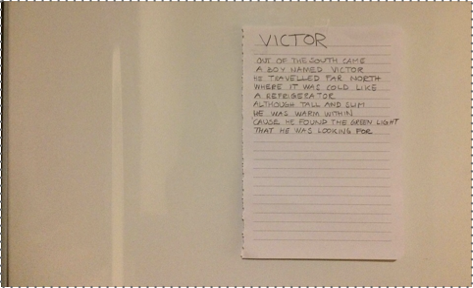 VICTOR
OUT OF THE SOUTH CAME
A BOY NAMED VICTOR
HE TRAVELLED FAR NORTH
WHERE IT WAS COLD LIKE
A REFRIGERATOR
ALTHOUGH TALL AND SLIM
HE WAS WARM WITHIN
CAUSE HE FOUND THE GREEN LIGHT
THAT HE WAS LOOKING FOR